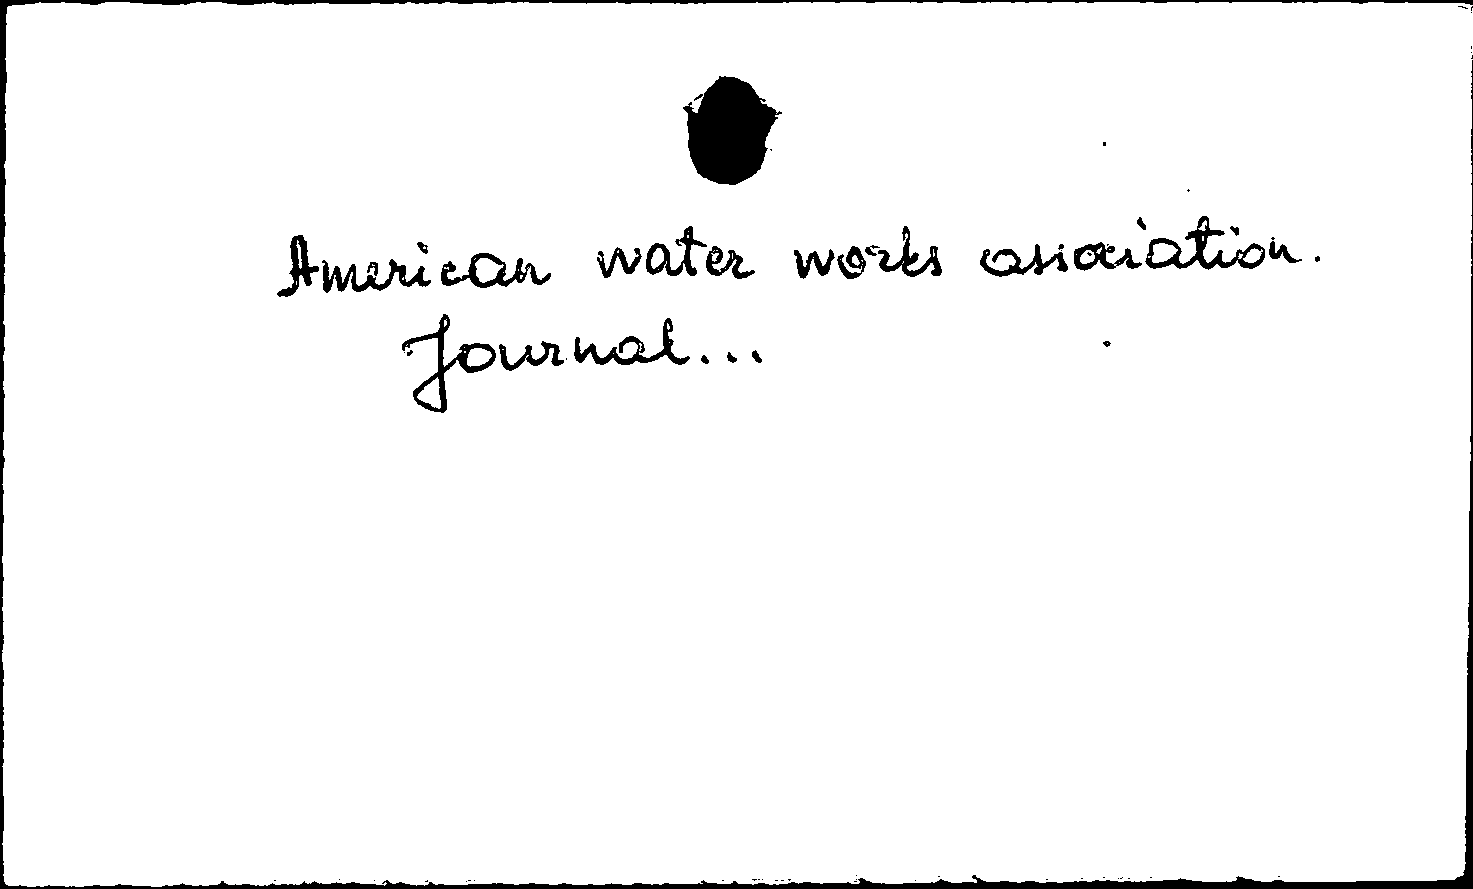 American water works association.
Journal...